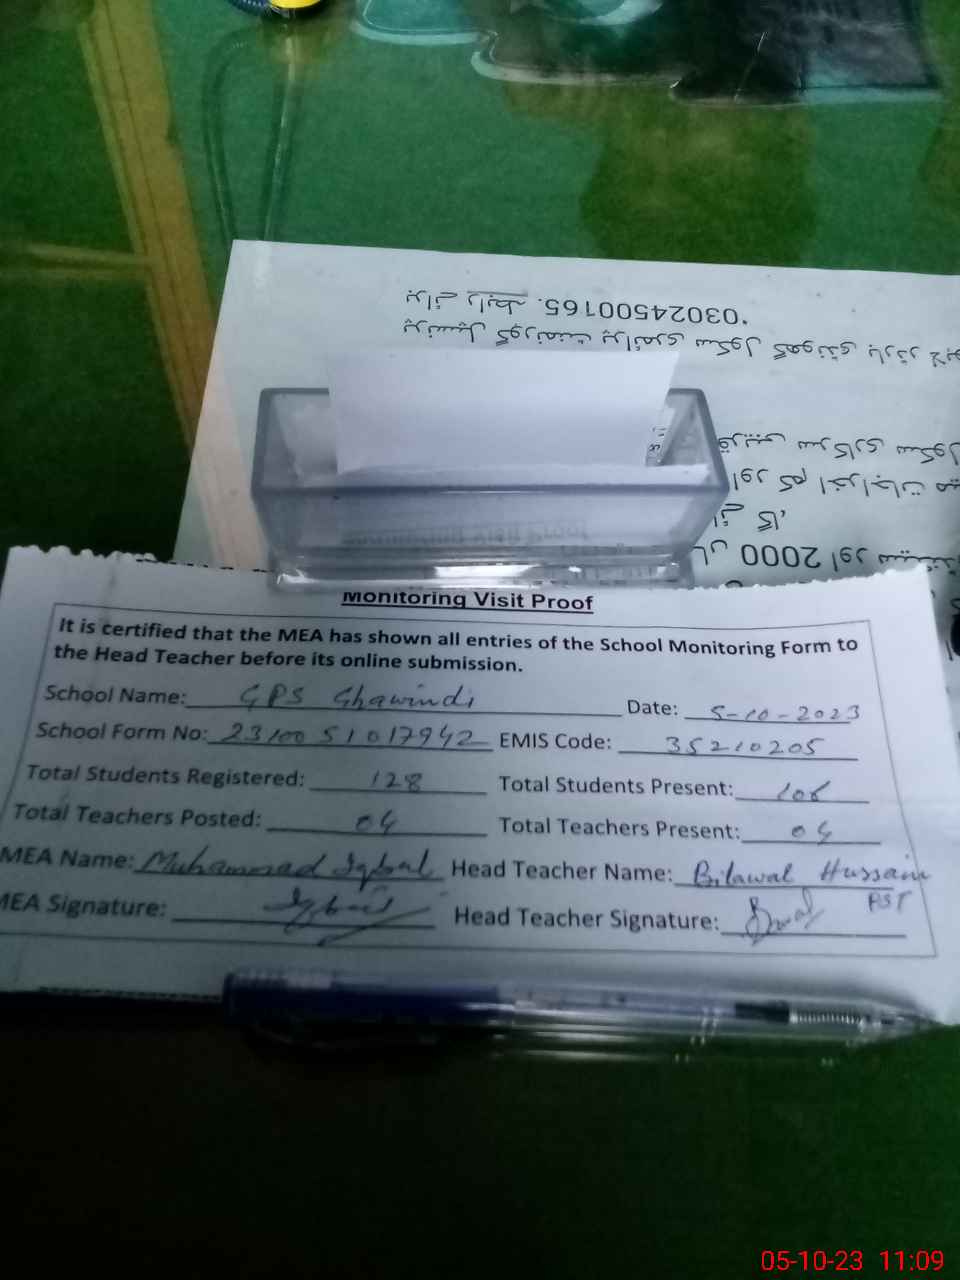 برائے رابطہ 03024500165.
بارڈر گھونڈی سکول پرائمری گورنمنٹ پرنسپل
سرکاری سکول
اخراجات کم اور
گا،
اور 2000
Monitoring Visit Proof
It is certified that the MEA has shown all entries of the School Monitoring Form to
the Head Teacher before its online submission.
School Name: GPS Ghawindi Date: 5-10-2023
School Form No: 23100 51017942 EMIS Code: 35210205
Total Students Registered: 128 Total Students Present: 106
Total Teachers Posted: 04 Total Teachers Present: 04
MEA Name: Muhammad Iqbal Head Teacher Name: Bilawal Hussain
PST
MEA Signature: Iqbal Head Teacher Signature:
05-10-23 11:09